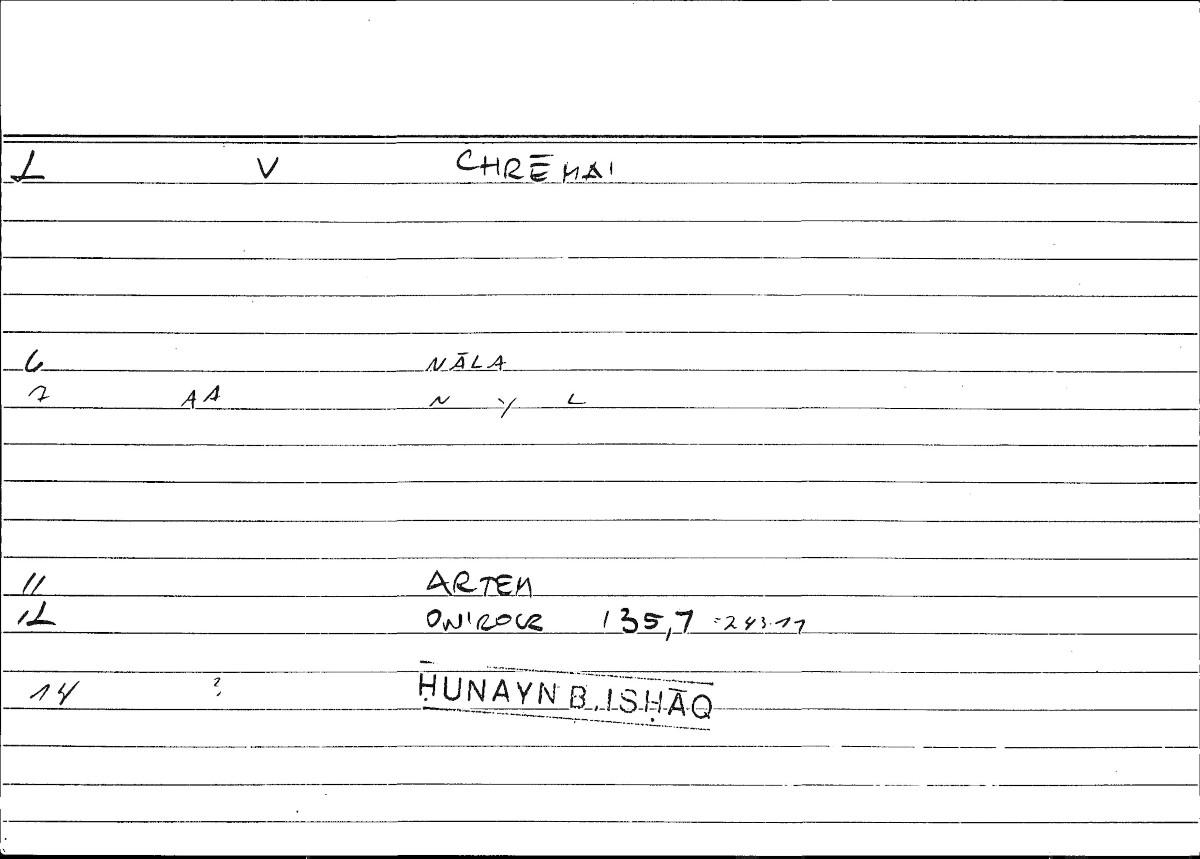 2 V CHRĒMAI
6 NĀLA
7 AA N Y L
11 ARTEM
12 ONIROCR 135,7 =243.11
14 ? ḤUNAYN B. ISḤĀQ